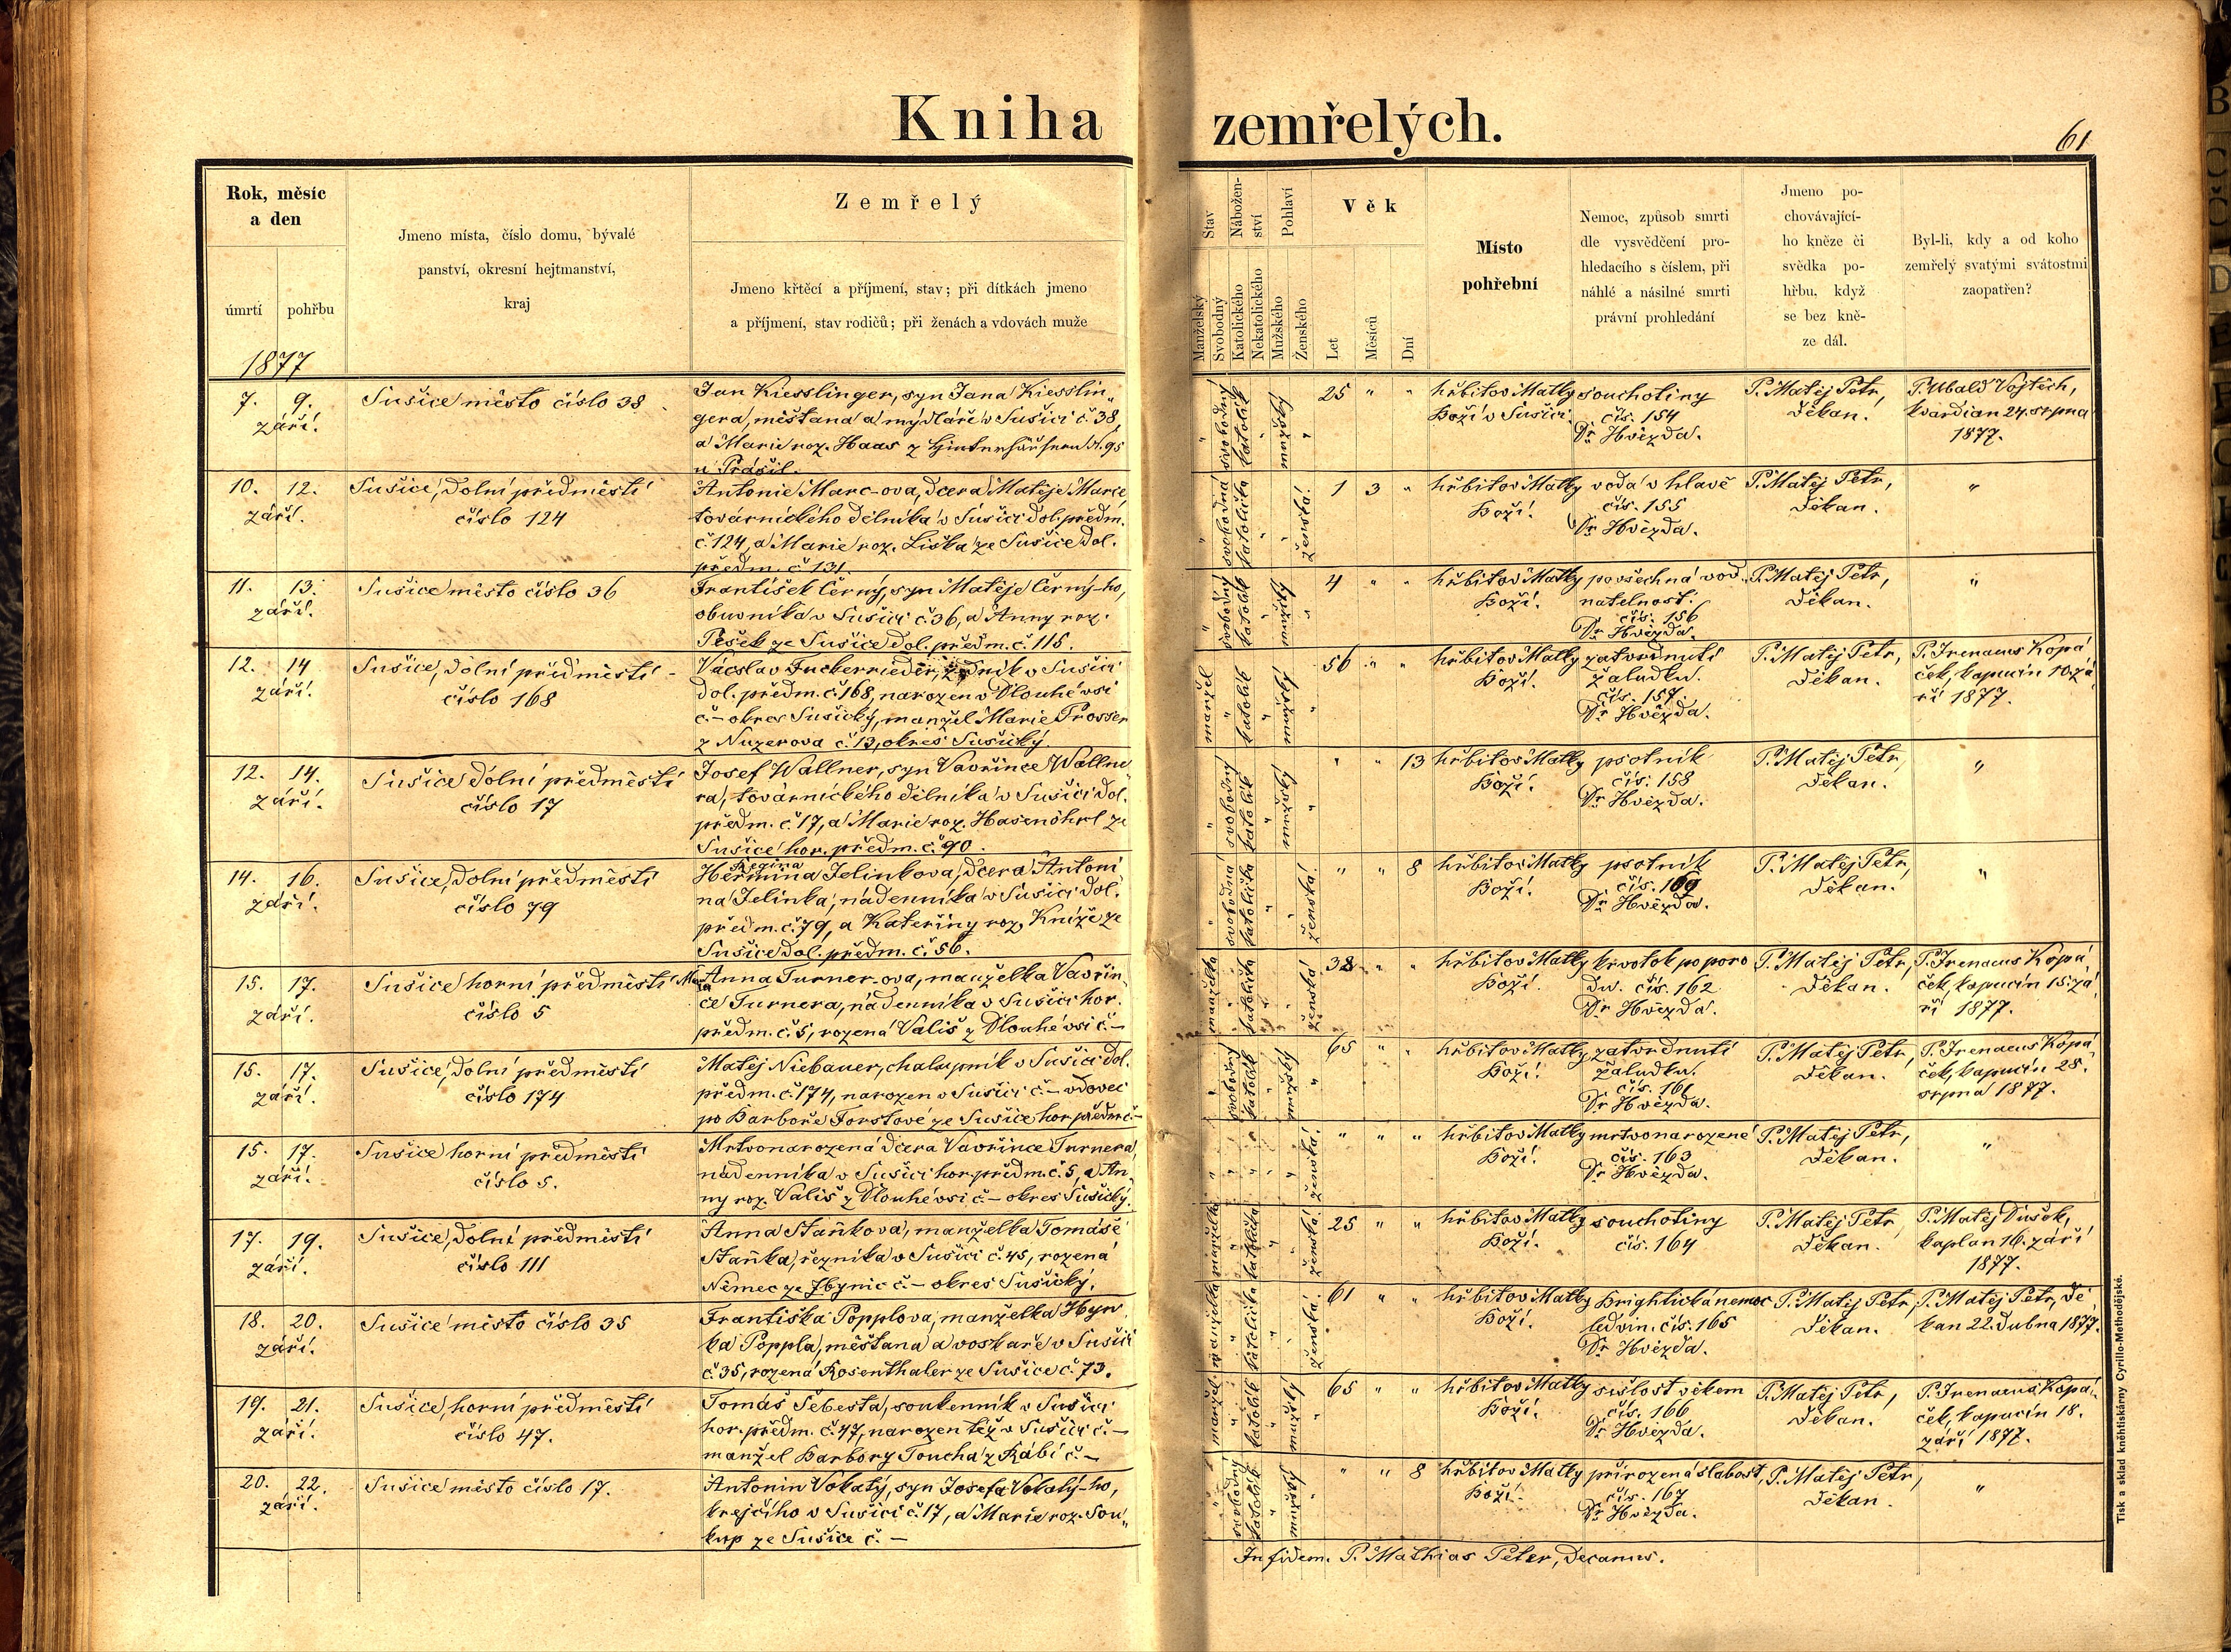 Kniha zemřelých.
61
Rok, měsíc
a den
úmrtí
pohřbu
Jmeno místa, číslo domu, bývalé
panství, okresní hejtmanství,
kraj
Zemřelý
Jmeno křtěcí a příjmení, stav; při dítkách jmeno
a příjmení, stav rodičů; při ženách a vdovách muže
Stav
Manželský
Svobodný
Nábožen-
ství
Katolického
Nekatolického
Pohlaví
Mužského
Ženského
Věk
Let
Měsíců
Dní
Místo
pohřební
Nemoc, způsob smrti
dle vysvědčení pro-
hledacího s číslem, při
náhlé a násilné smrti
právní prohledání
Jmeno po-
chovávající-
ho kněze či
svědka po-
hřbu, když
se bez kně-
ze dál.
Byl-li, kdy a od koho
zemřelý svatými svátostmi
zaopatřen?
1877
7. 9.
září.
Sušice město číslo 38
Jan Kiesslinger, syn Jana Kiesslin„
gera, měštana a mýdláře v Sušici č. 38,
a Marie roz. Haas z č. 95
u Prášil.
" svobodný
katolík "
mužský "
25 " "
hřbitov Matky
Boží v Sušici
souchotiny
čís. 154
Dr. Hvězda.
P. Matěj Petr,
děkan.
P. Ubald Vojtěch,
kvardian 24. srpna
1877.
10. 12.
září.
Sušice, dolní předměstí
číslo 124
Antonie Marc-ova, dcera Matěje Marce,
továrnického dělníka v Sušici dol. předm.
č. 124, a Marie roz. Liška ze Sušice dol.
předm. č 131.
" svobodná
katolička "
" ženská.
1 3 "
hřbitov Matky
Boží.
voda v hlavě
čís. 155
Dr. Hvězda.
P. Matěj Petr,
děkan.
"
11. 13.
září.
Sušice město číslo 36
František Černý, syn Matěje Černý-ho,
obuvníka v Sušici č. 36, a Anny roz.
Pešek ze Sušice dol. předm. č. 116.
" svobodný
katolík "
mužský "
4 " "
hřbitov Matky
Boží.
povšechná vod„
natelnost.
čís. 156
Dr. Hvězda.
P. Matěj Petr,
děkan.
"
12. 14
září.
Sušice, dolní předměstí -
číslo 168
Václav Fuckerrieder, zedník v Sušici
dol. předm. č. 168, narozen v Dlouhévsi
č.- okres Sušický, manžel Marie Prosser
z Nuzerova č. 13, okres Sušický.
manžel "
katolík "
mužský "
56 " "
hřbitov Matky
Boží.
zatvrdnutí
žaludku.
čís. 157.
Dr. Hvězda.
P. Matěj Petr,
děkan.
P. Irenaeus Kopá„
ček, kapucín 10. zá„
ří 1877.
12. 14.
září.
Sušice dolní předměstí
číslo 17
Josef Wallner, syn Vavřince Wallne„
ra, továrnického dělníka v Sušici dol.
předm. č. 17, a Marie roz. Hasenöhrl ze
Sušice hor. předm. č. 90.
" svobodný
katolík "
mužský "
" " 13
hřbitov Matky
Boží.
psotník
čís. 158
Dr. Hvězda.
P. Matěj Petr,
děkan.
"
14. 16.
září.
Sušice, dolní předměstí
číslo 79
Regina
Hermina Jelinkova, dcera Antoni„
na Jelinka, nádenníka v Sušici dol.
předm. č. 79, a Kateřiny roz. Kníže ze
Sušice dol. předm. č. 56.
" svobodná
katolička "
" ženská.
" " 8
hřbitov Matky
Boží.
psotník
Dr. Hvězda.
P. Matěj Petr,
děkan.
"
15. 17.
září.
Sušice horní předměstí
číslo 5
Anna Turner-ova, manželka Vavřin„
ce Turnera, nádenníka v Sušici hor.
předm. č. 5, rozená Vališ z Dlouhévsi č.-
manželka "
katolička "
" ženská
" "
hřbitov Matky
Boží.
krvotok po poro„
du. čís. 162
Dr. Hvězda.
P. Matěj Petr,
děkan.
P. Irenaeus Kopá„
ček, kapucín 15. zá„
ří 1877.
15. 17.
září.
Sušice, dolní předměstí
číslo 174
Matěj Niebauer, chalupník v Sušici dol.
předm. č. 174, narozen v Sušici č.- vdovec
po Barboře Forstové ze Sušice hor. předm. č.-
" svobodný
katolík "
mužský "
65 " "
hřbitov Matky
Boží.
zatvrdnutí
žaludku.
čís. 161
Dr. Hvězda.
P. Matěj Petr,
děkan.
P. Irenaeus Kopá„
ček, kapucín 28.
srpna 1877.
15. 17.
září.
Sušice horní předměstí
číslo 5.
Mrtvonarozená dcera Vavřince Turnera,
nádenníka v Sušici hor. předm. č. 5, a An„
ny roz. Vališ z Dlouhévsi č.- okres Sušický.
" "
" "
" ženská.
" " "
hřbitov Matky
Boží.
mrtvonarozené
čís. 163
Dr. Hvězda.
P. Matěj Petr,
děkan.
"
17. 19.
září.
Sušice, dolní předměstí
číslo 111
Anna Staňkova, manželka Tomáše
Staňka, řezníka v Sušici č. 45, rozená
Němec ze Zbynic č.- okres Sušický.
manželka "
katolička "
" ženská.
25 " "
hřbitov Matky
Boží.
souchotiny
čís. 164
P. Matěj Petr,
děkan.
P. Matěj Dušek,
kaplan 16. září
1877.
18. 20.
září.
Sušice město číslo 35
Františka Popplova, manželka Hyn„
ka Poppla, měštana a voskaře v Sušici
č. 35, rozená Rosenthaler ze Sušice č. 73.
manželka "
katolička "
" ženská.
61 " "
hřbitov Matky
Boží.
Brightická nemoc
ledvin. čís. 165
Dr. Hvězda.
P. Matěj Petr,
děkan.
P. Matěj Petr, dě„
kan 22. dubna 1877.
19. 21.
září.
Sušice, horní předměstí
číslo 47.
Tomáš Šebesta, soukenník v Sušici
hor. předm. č. 47, narozen též v Sušici č.-
manžel Barbory Toucha z Rábí č.-
manžel "
katolík "
mužský "
65 " "
hřbitov Matky
Boží.
sešlost věkem
čís. 166
Dr. Hvězda.
P. Matěj Petr,
děkan.
P. Irenaeus Kopá„
ček, kapucín 18.
září 1877.
20. 22.
září.
Sušice město číslo 17.
Antonin Vokatý, syn Josefa Vokatý-ho,
krejčího v Sušici č. 17, a Marie roz. Sou„
kup ze Sušice č.-
" svobodný
katolík "
mužský "
" " 8
hřbitov Matky
Boží.
přirozená slabost,
čís. 167
Dr. Hvězda.
P. Matěj Petr,
děkan.
"
In fidem. P. Mathias Peter, decanus.
Tisk a sklad kněhtiskárny Cyrillo-Methodějské.